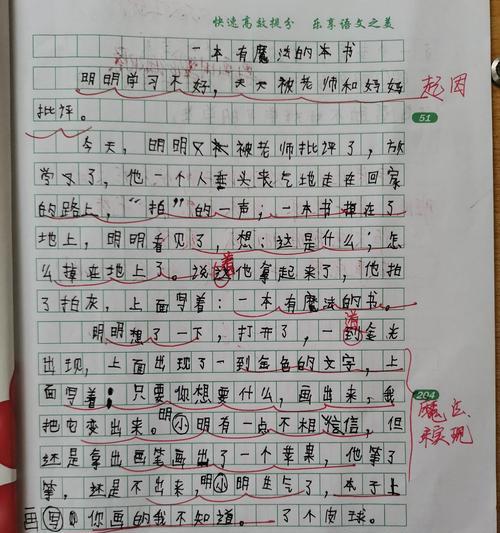 快速高效提分 乐享语文之美
一本有魔法的本书
明明学习不好，天天被老师和妈妈
起因
批评。
51
今天，明明又被老师批评了，放
学了，他一个人垂头丧气地走在回家
的路上，“拍”的一声；一本书掉在了
地上，明明看见了，想：这是什么；怎
么掉在地上了。说着他拿起来了，他拍
了拍灰，上面写着：一本有魔法的书。
明明想了一下，打开了，一道金光
出现，上面出现了一到金色的文字，上
面写着；只要你想要什么，画出来，我
204
把它变出来。明小明有一点不相信，但
魔法
来实现
还是拿出画笔画出了一个苹果，他等了
等，还是不出来，明小明生气了，本子上
画写：你画的我不知道。了个皮球。